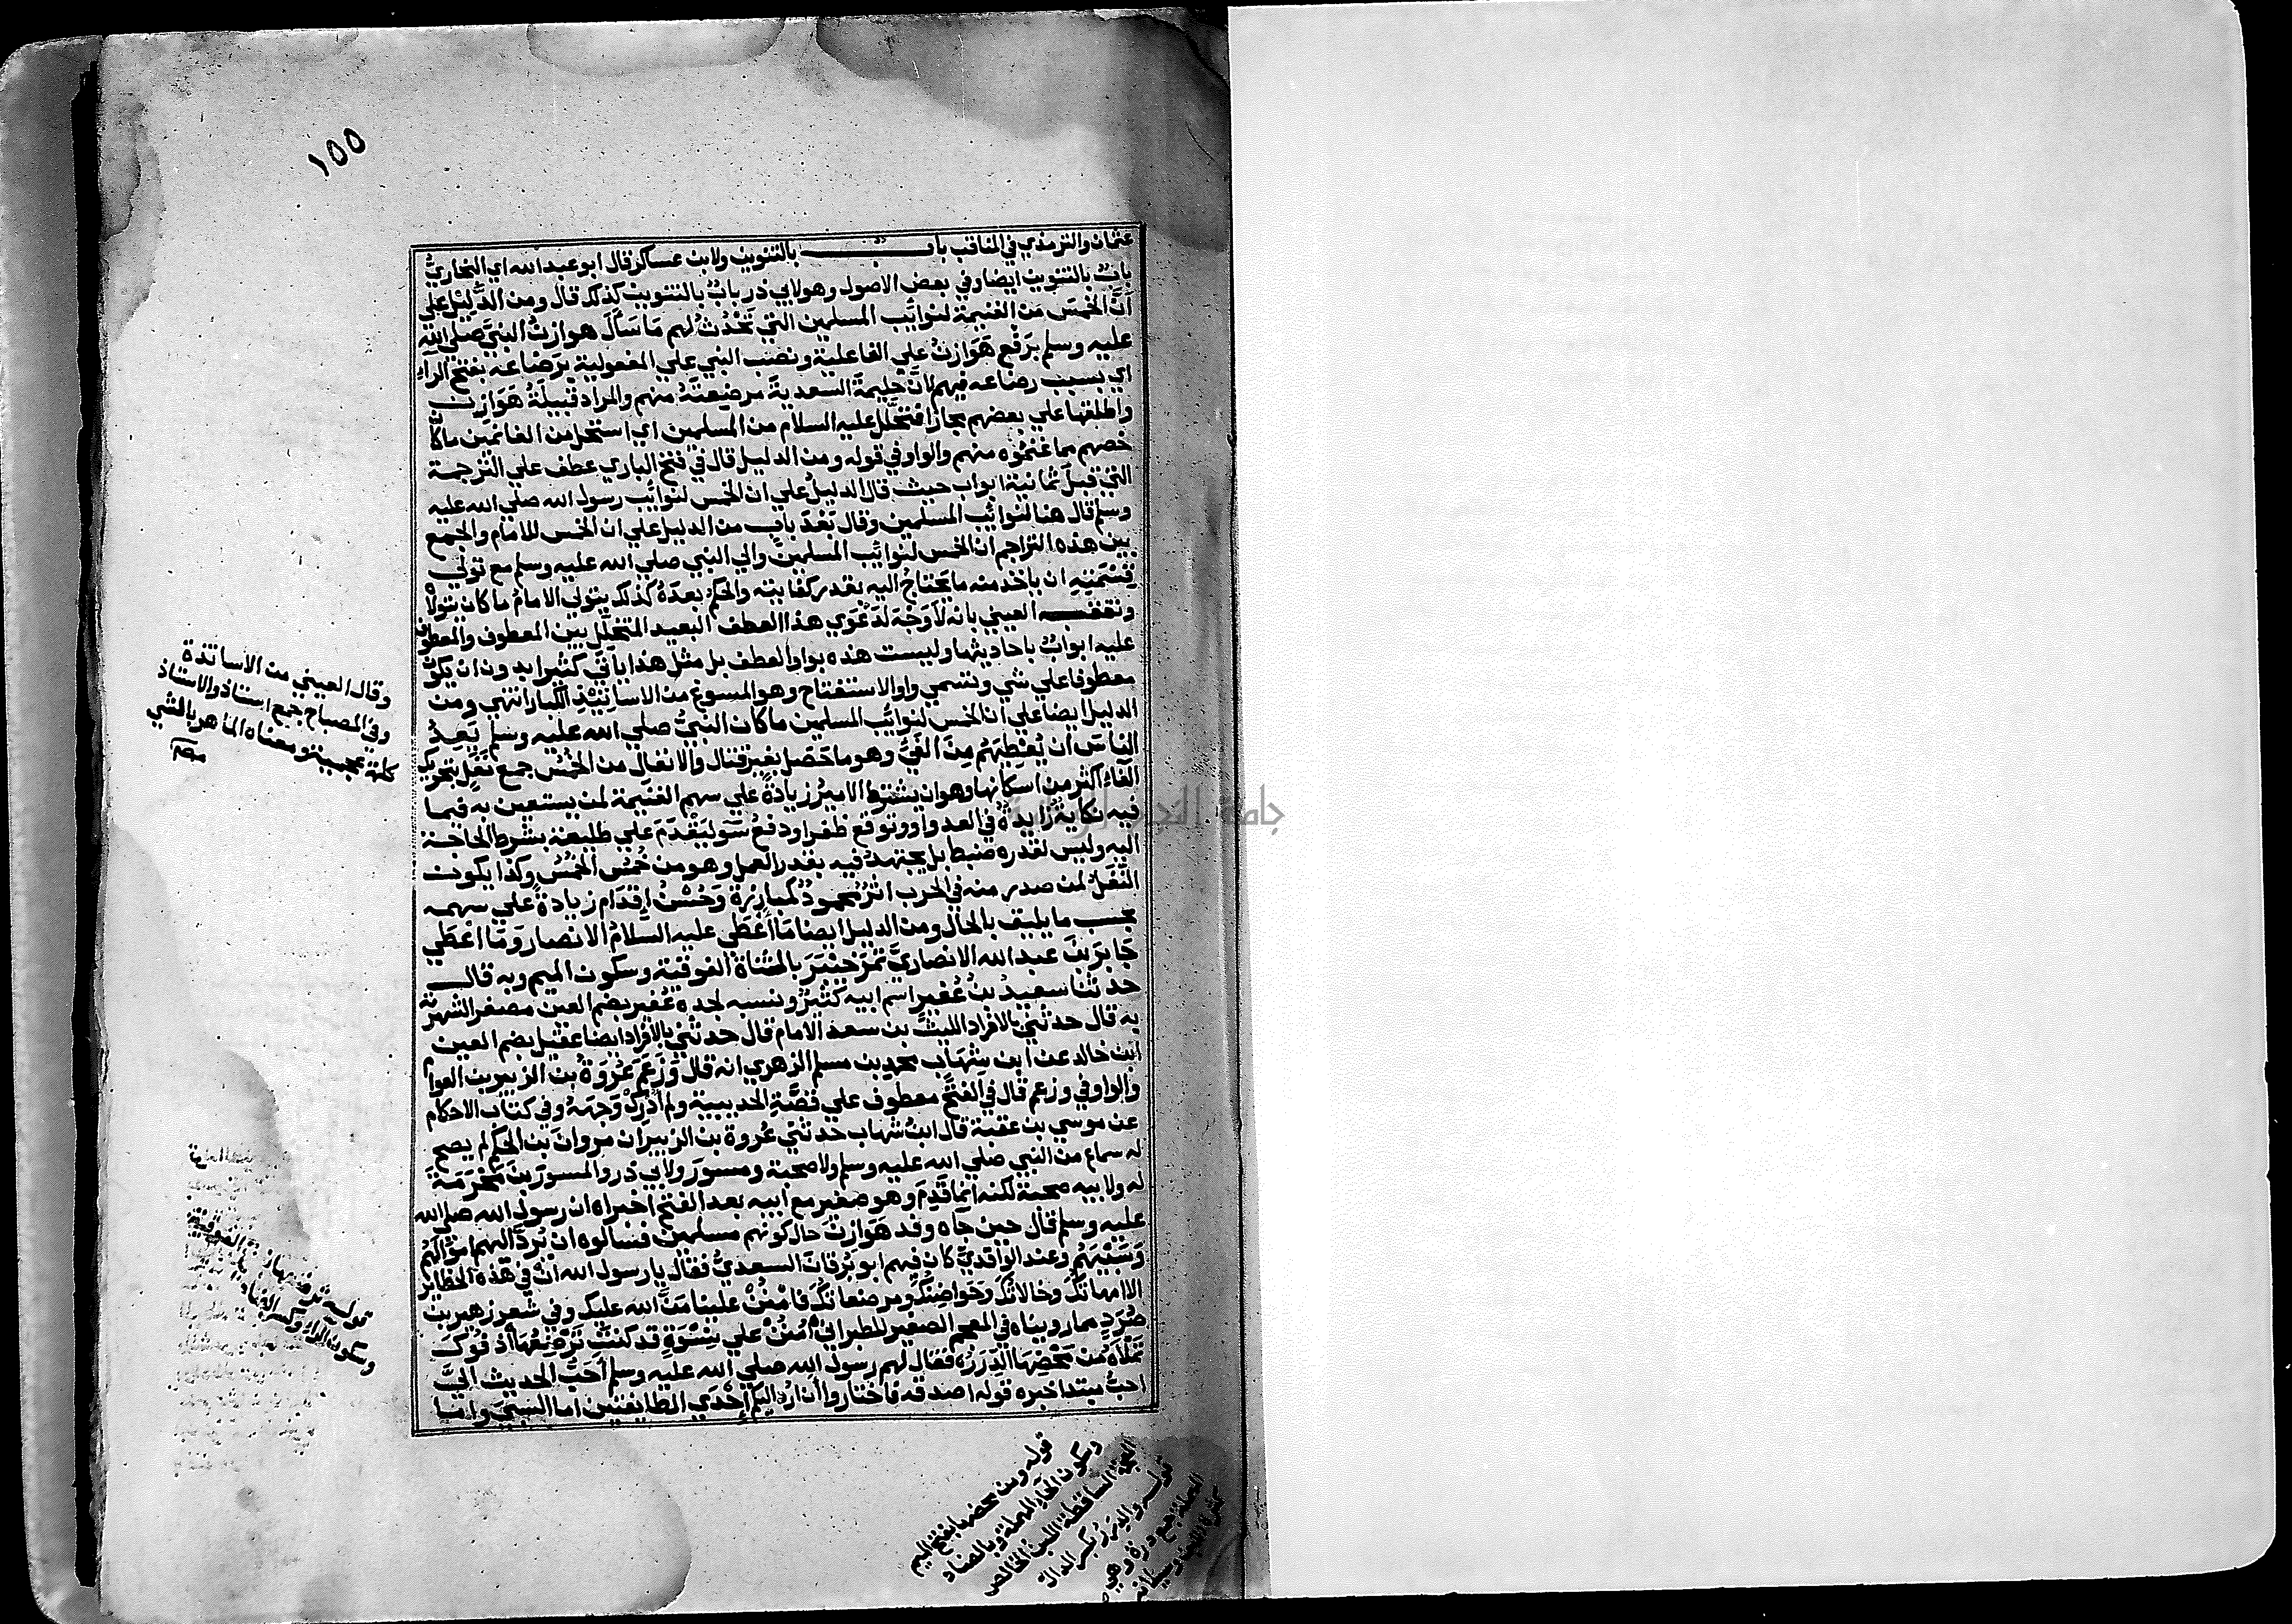 ١٥٥
عثمان والترمذي في المناقب باب بالتنوين ولابن عساكر قال ابو عبد الله اي البخاري
باب بالتنوين ايضا وفي بعض الاصول وهو لابي ذر باب بالتنوين كذلك قال ومن الدليل علي
ان الخمس من الغنيمة لنوائب المسلمين التي تحدث لهم ما سأل هوازن النبي صلي الله
عليه وسلم برفع هوازن علي الفاعلية ونصب النبي علي المفعولية برضاعه بفتح الراء
اي بسبب رضاعه فيهم لان حليمة السعدية مرضعته منهم والمراد قبيلة هوازن
واطلقها علي بعضهم مجازا فتحلل عليه السلام من المسلمين اي استحل من الغانمين ما كان
خصهم مما غنموه منهم والواو في قوله ومن الدليل قال في فتح الباري عطف علي الترجمة
التي قبل ثمانية ابواب حيث قال الدليل علي ان الخمس لنوائب رسول الله صلي الله عليه
وسلم قال هنا لنوائب المسلمين وقال بعد باب من الدليل علي ان الخمس للامام والجمع
بين هذه التراجم ان الخمس لنوائب المسلمين والي النبي صلي الله عليه وسلم مع تولي
قسمته ان ياخذ منه ما يحتاج اليه بقدر كفايته والحكم بعده كذلك يتولي الامام ما كان يتولاه
وتعقبه العيني بانه لا وجه لدعوي هذا العطف البعيد المتخلل بين المعطوف والمعطوف
عليه ابواب باحاديثها وليست هذه بواو العطف بل مثل هذا ياتي كثيرا بدون ان يكون
معطوفا علي شي وتسمي واو الاستفتاح وهو المسموع من الاساتيذ الكبار انتهي ومن
الدليل ايضا علي ان الخمس لنوائب المسلمين ما كان النبي صلي الله عليه وسلم يعد
الناس ان يعطيهم من الفي وهو ما حصل بغير قتال والانفال من الخمس جمع نفل بتحريك
الفاء اكثر من اسكانها وهو ان يشترط الامير زيادة علي سهم الغنيمة لمن يستعين به فيما
فيه نكاية زايدة في العدو او توقع ظفر او دفع سو ليقدم علي طليعة بشرط الحاجة
اليه وليس لقدره ضبط بل يجتهد فيه بقدر العمل وهو من خمس الخمس وكذا يكون
النفل لمن صدر منه في الحرب اثر محمود كمبارزة وحسن اقدام زيادة علي سهمه
بحسب ما يليق بالحال ومن الدليل ايضا ما اعطي عليه السلام الانصار وما اعطي
جابر بن عبد الله الانصاري تمر خيبر بالمثناة الفوقية وسكون الميم وبه قال
حدثنا سعيد بن عفير اسم ابيه كثير ونسبه لجده عفير بضم العين مصغر الشهرته
به قال حدثني بالافراد الليث بن سعد الامام قال حدثني بالافراد ايضا عقيل بضم العين
ابن خالد عن ابن شهاب محمد بن مسلم الزهري انه قال وزعم عروة بن الزبير بن العوام
والواو في وزعم قال في الفتح معطوف علي قصة الحديبية ولم ادرك وجهه وفي كتاب الاحكام
عن موسي بن عقبة قال ابن شهاب حدثني عروة بن الزبير ان مروان بن الحكم لم يصح
له سماع من النبي صلي الله عليه وسلم ولا صحبة ومسور ولابي ذر والمسور بن مخرمة
له ولابيه صحبة لكنه انما قدم وهو صغير مع ابيه بعد الفتح اخبراه ان رسول الله صلي الله
عليه وسلم قال حين جاه وفد هوازن حال كونهم مسلمين فسالوه ان يرد اليهم اموالهم
وسبيهم وعند الواقدي كان فيهم ابو برقان السعدي فقال يا رسول الله ان في هذه الحظاير
الا امهاتك وخالاتك وحواضنك ومرضعاتك فامنن علينا من الله عليك وفي شعر زهير بن
صرد مما رويناه في المعجم الصغير للطبراني امنن علي نسوة قد كنت ترضعها اذ فوك
تملاه من محضها الدرر فقال لهم رسول الله صلي الله عليه وسلم احب الحديث الي
احب مبتدا خبره قوله اصدقه فاختاروا ان ارد اليكم احدي الطايفتين اما السبي واما
وقال العيني من الاساتذة
وفي المصباح جمع استاذ والاستاذ
كلمة عجمية ومعناه الماهر بالشي
وسكون الراء وكسر الضاد
قوله من محضها بفتح الميم
وسكون الحاء المهملة وبالضاد
الساقطة اللبن الخالص
قوله والدرر بكسر الدال
المهملة جمع درة وهي
جامعة